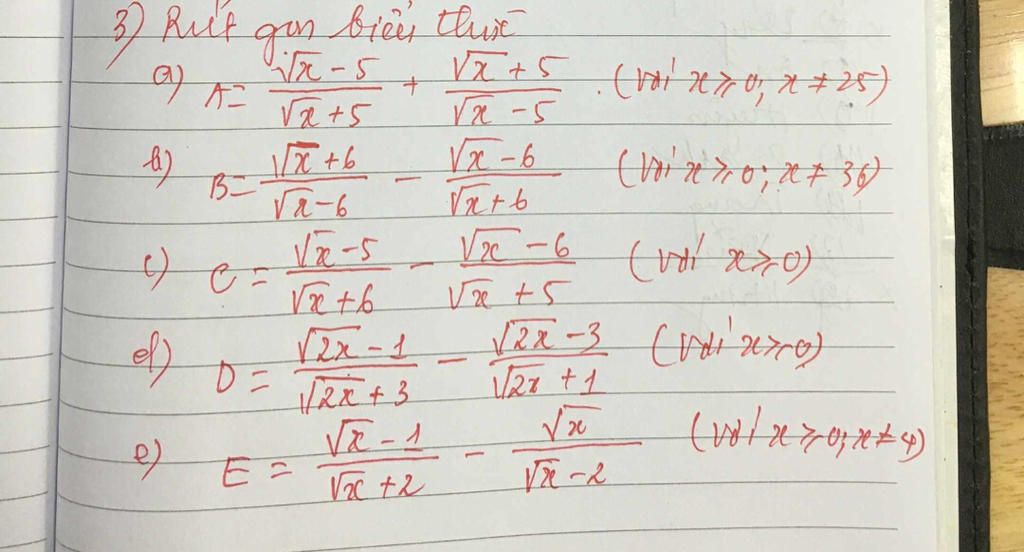 3) Rút gọn biểu thức
a) A = (√x − 5)/(√x + 5) + (√x + 5)/(√x − 5) . (với x ≥ 0; x ≠ 25)
b) B = (√x + 6)/(√x − 6) − (√x − 6)/(√x + 6) (với x ≥ 0; x ≠ 36)
c) C = (√x − 5)/(√x + 6) − (√x − 6)/(√x + 5) (với x ≥ 0)
d) D = (√2x − 1)/(√2x + 3) − (√2x − 3)/(√2x + 1) (với x ≥ 0)
e) E = (√x − 1)/(√x + 2) − √x/(√x − 2) (với x ≥ 0; x ≠ 4)